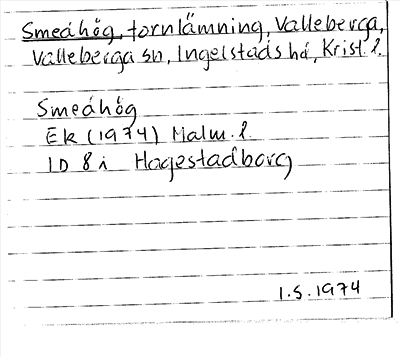 Smeáhög, fornlämning, Valleberga,
Valleberga sn, Ingelstads hd, Krist. l.
Smeáhög
Ek (1974) Malm. l.
1D 8i Hagestadborg
1.5.1974